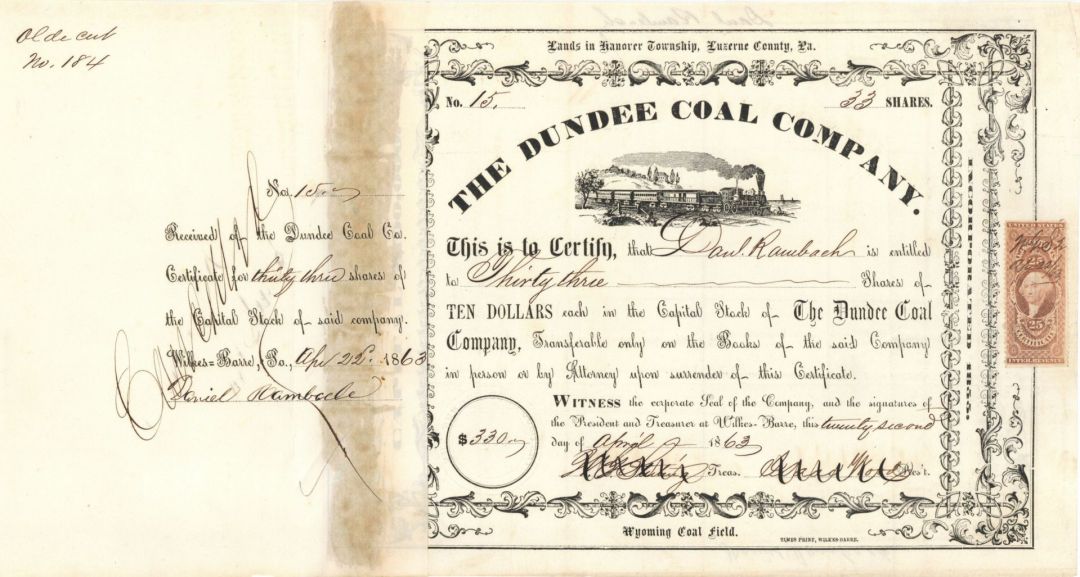 Olde cut
No. 184
No. 15
Received of the Dundee Coal Co.
Certificate for thirty three shares of
the Capital Stock of said company.
Wilkes=Barre, Pa., Apr 22d. 1863
Daniel Rambach
Lands in Hanover Township, Luzerne County, Pa.
No. 15. 33 SHARES.
THE DUNDEE COAL COMPANY.
This is to Certify, that Danl. Rambach is entitled
to Thirty three Shares of
TEN DOLLARS each in the Capital Stock of The Dundee Coal
Company, Transferable only on the Books of the said Company
in person or by Attorney upon surrender of this Certificate.
WITNESS the corporate Seal of the Company, and the signatures of
the President and Treasurer at Wilkes-Barre, this twenty second
day of April 1863
$330
Treas. Pres't.
Wyoming Coal Field.
TIMES PRINT, WILKES-BARRE.
UNITED STATES
25
25
CERTIFICATE
INTER. REVENUE